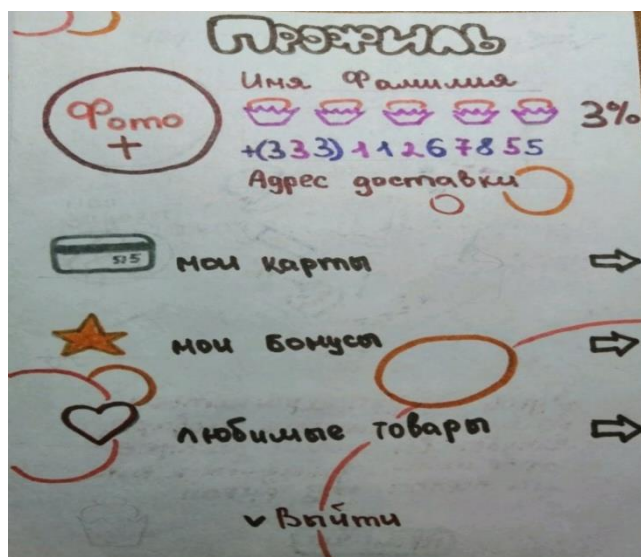 Профиль
Имя Фамилия
Фото
+
3%
+(333) 11267855
Адрес доставки
515
мои карты
мои бонусы
любимые товары
Выйти